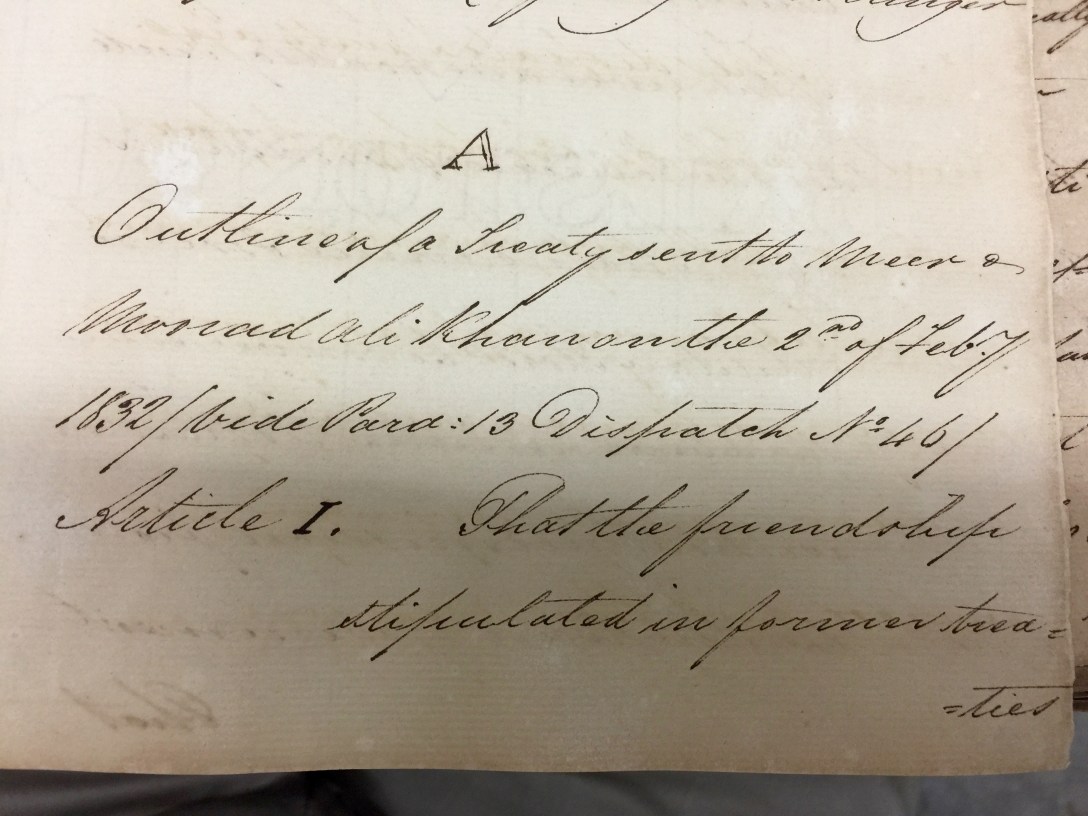 A
Outline of a Treaty sent to Meer
Moorad Ali Khan on the 2nd of Feby
1832/ vide Para: 13 Dispatch No 46/
Article I. That the friendship
stipulated in former trea=
=ties